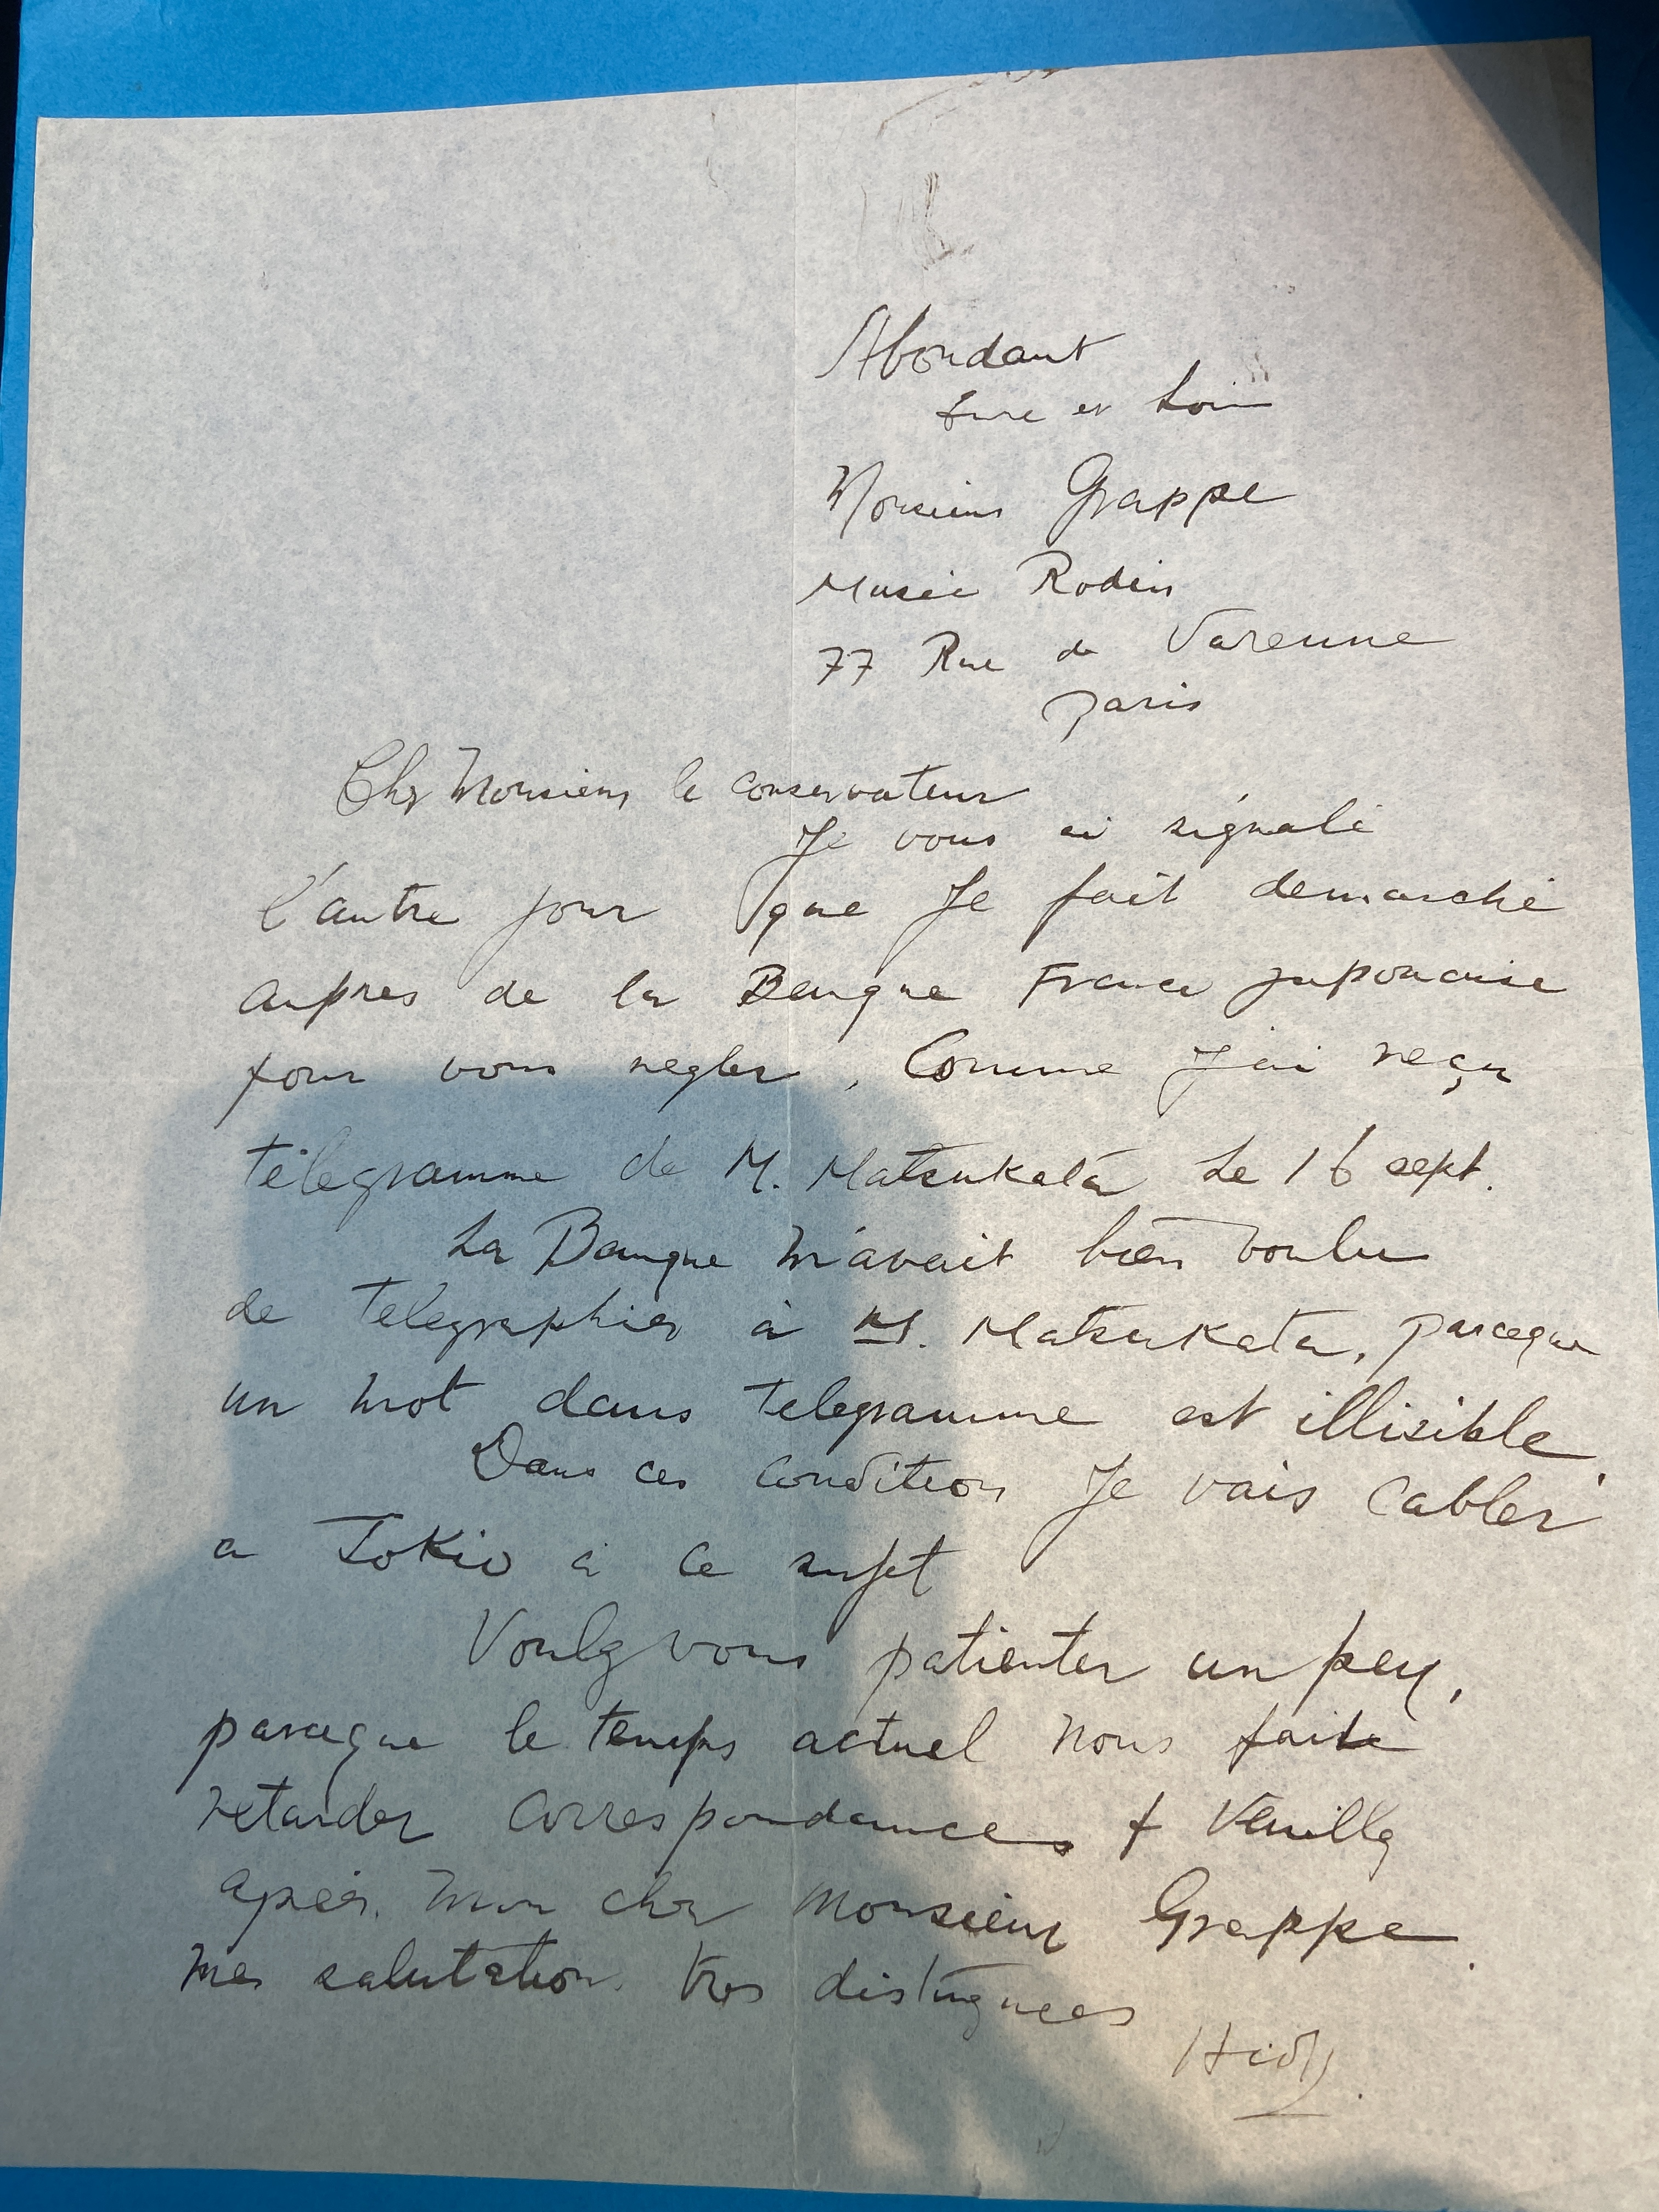 Abondant
Eure et Loir
Monsieur Grappe
Musée Rodin
77 Rue de Varenne
Paris
Cher Monsieur le conservateur
Je vous ai signalé
l'autre jour que Je fait demarché
aupres de la Banque Franco japonaise
pour vous regler, Comme J'ai reçu
télegramme de M. Matsukata Le 16 sept.
La Banque m'avait bien voulu
de telegraphier à M. Matsukata, parceque
un mot dans telegramme est illisible.
Dans ces condition Je vais cabler
a Tokio à ce sujet
Voulez vous patienter un peu,
parceque le temps actuel nous faite
retarder correspondances + Veuillez
agréer, mon cher Monsieur Grappe.
mes salutation tres distinguees